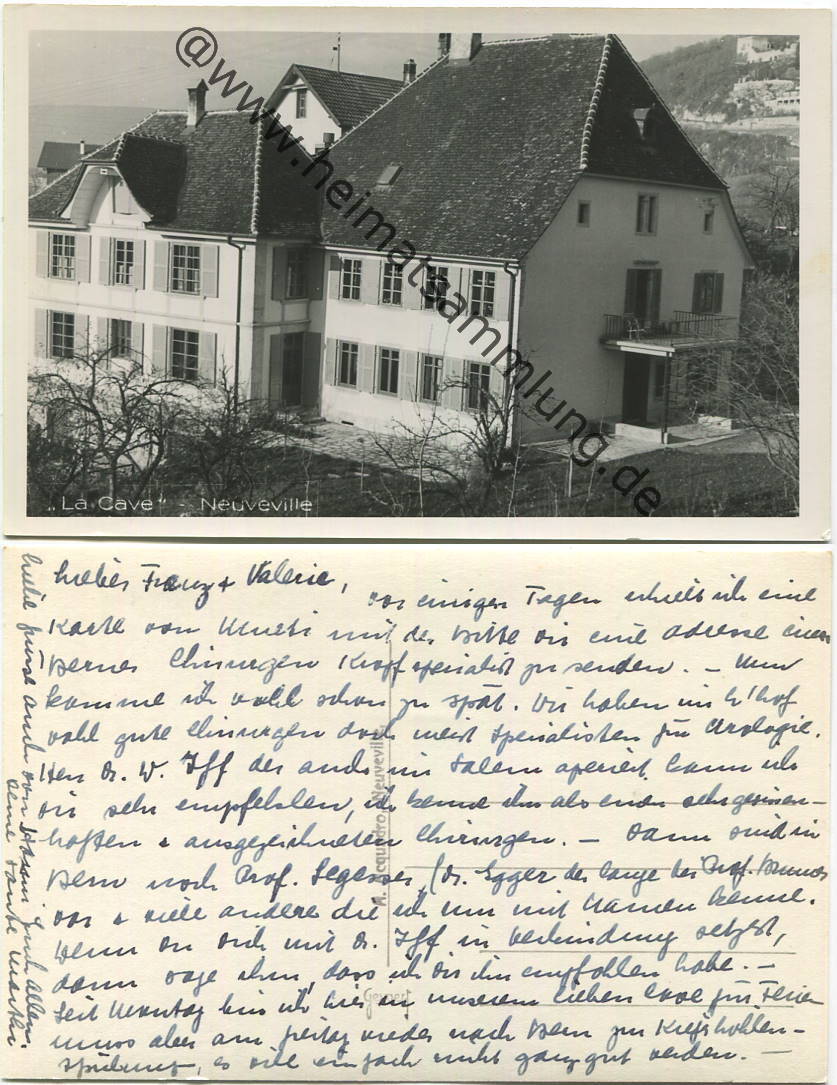 @www.heimatsammlung.de
„La Cave" - Neuveville
Liebe Franz + Valerie,
vor einigen Tagen erhielt ich eine
Karte von Mueti mit der Bitte dir eine Adresse eines
Berner Chirurgen Kropfspezialist zu senden. - Nun
komme ich wohl schon zu spät. Wir haben im L'hof
wohl gute Chirurgen doch meist Spezialisten für Urologie.
Herr Dr. W. Iff der auch im Salem operiert kann ich
dir sehr empfehlen, ich kenne ihn als einen sehr gewissen-
haften & ausgezeichneten Chirurgen. - Dann sind in
Bern noch Prof. Segesser, (Dr. Egger der lange bei Prof.
vor & viele andere die ich nur mit Namen kenne.
Wenn du dich mit Dr. Iff in Verbindung setzest,
dann sage ihm, dass ich dir ihn empfohlen habe. -
Seit Montag bin ich hier in unserem lieben Cave für Ferien
muss aber am Freitag wieder nach Bern zur
spülung, es will einfach nicht ganz gut werden. -
Liebe Grüsse auch von Euch allen.
eine Tante Marthi
Acquadro, Neuveville
Gevaert